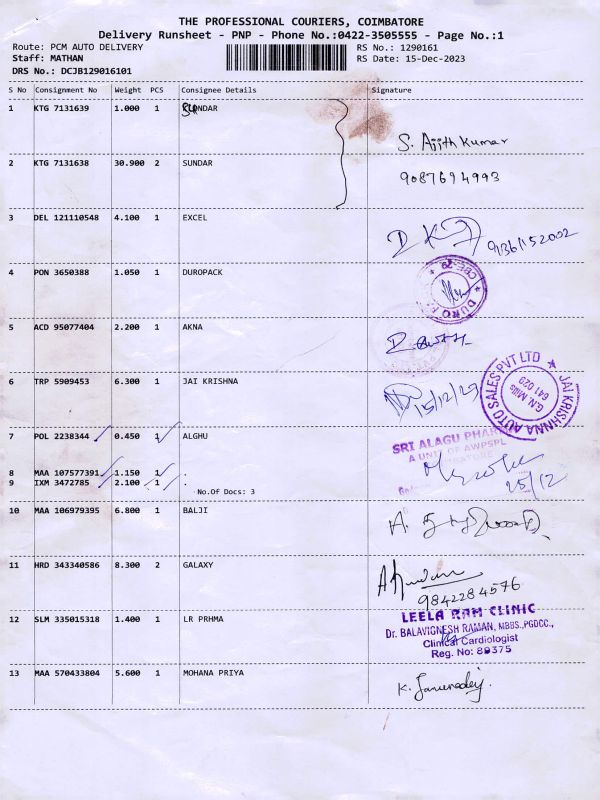 THE PROFESSIONAL COURIERS, COIMBATORE
Delivery Runsheet - PNP - Phone No.:0422-3505555 - Page No.:1
Route: PCM AUTO DELIVERY
RS No.: 1290161
Staff: MATHAN
RS Date: 15-Dec-2023
DRS No.: DCJB129016101
S No Consignment No Weight PCS Consignee Details Signature
1 KTG 7131639 1.000 1 SUNDAR
S. Ajith Kumar
2 KTG 7131638 30.900 2 SUNDAR
9087694993
3 DEL 121110548 4.100 1 EXCEL
9136152002
4 PON 3650388 1.050 1 DUROPACK
5 ACD 95077404 2.200 1 AKNA
6 TRP 5909453 6.300 1 JAI KRISHNA
15/12/23
JAI KRISHNNA AUTO SALES PVT LTD
G.N. Mills
641 029
7 POL 2238344 0.450 1 ALGHU
SRI ALAGU
A UNIT OF AWPSPL
8 MAA 107577391 1.150 1 .
9 IXM 3472785 2.100 1 .
No.Of Docs: 3
15/12
10 MAA 106979395 6.800 1 BALJI
11 HRD 343340586 8.300 2 GALAXY
9842284576
12 SLM 335015318 1.400 1 LR PRHMA
LEELA RAM CLINIC
Dr. BALAVIGNESH RAMAN, MBBS.,PGDCC.,
Clinical Cardiologist
Reg. No: 89375
13 MAA 570433804 5.600 1 MOHANA PRIYA